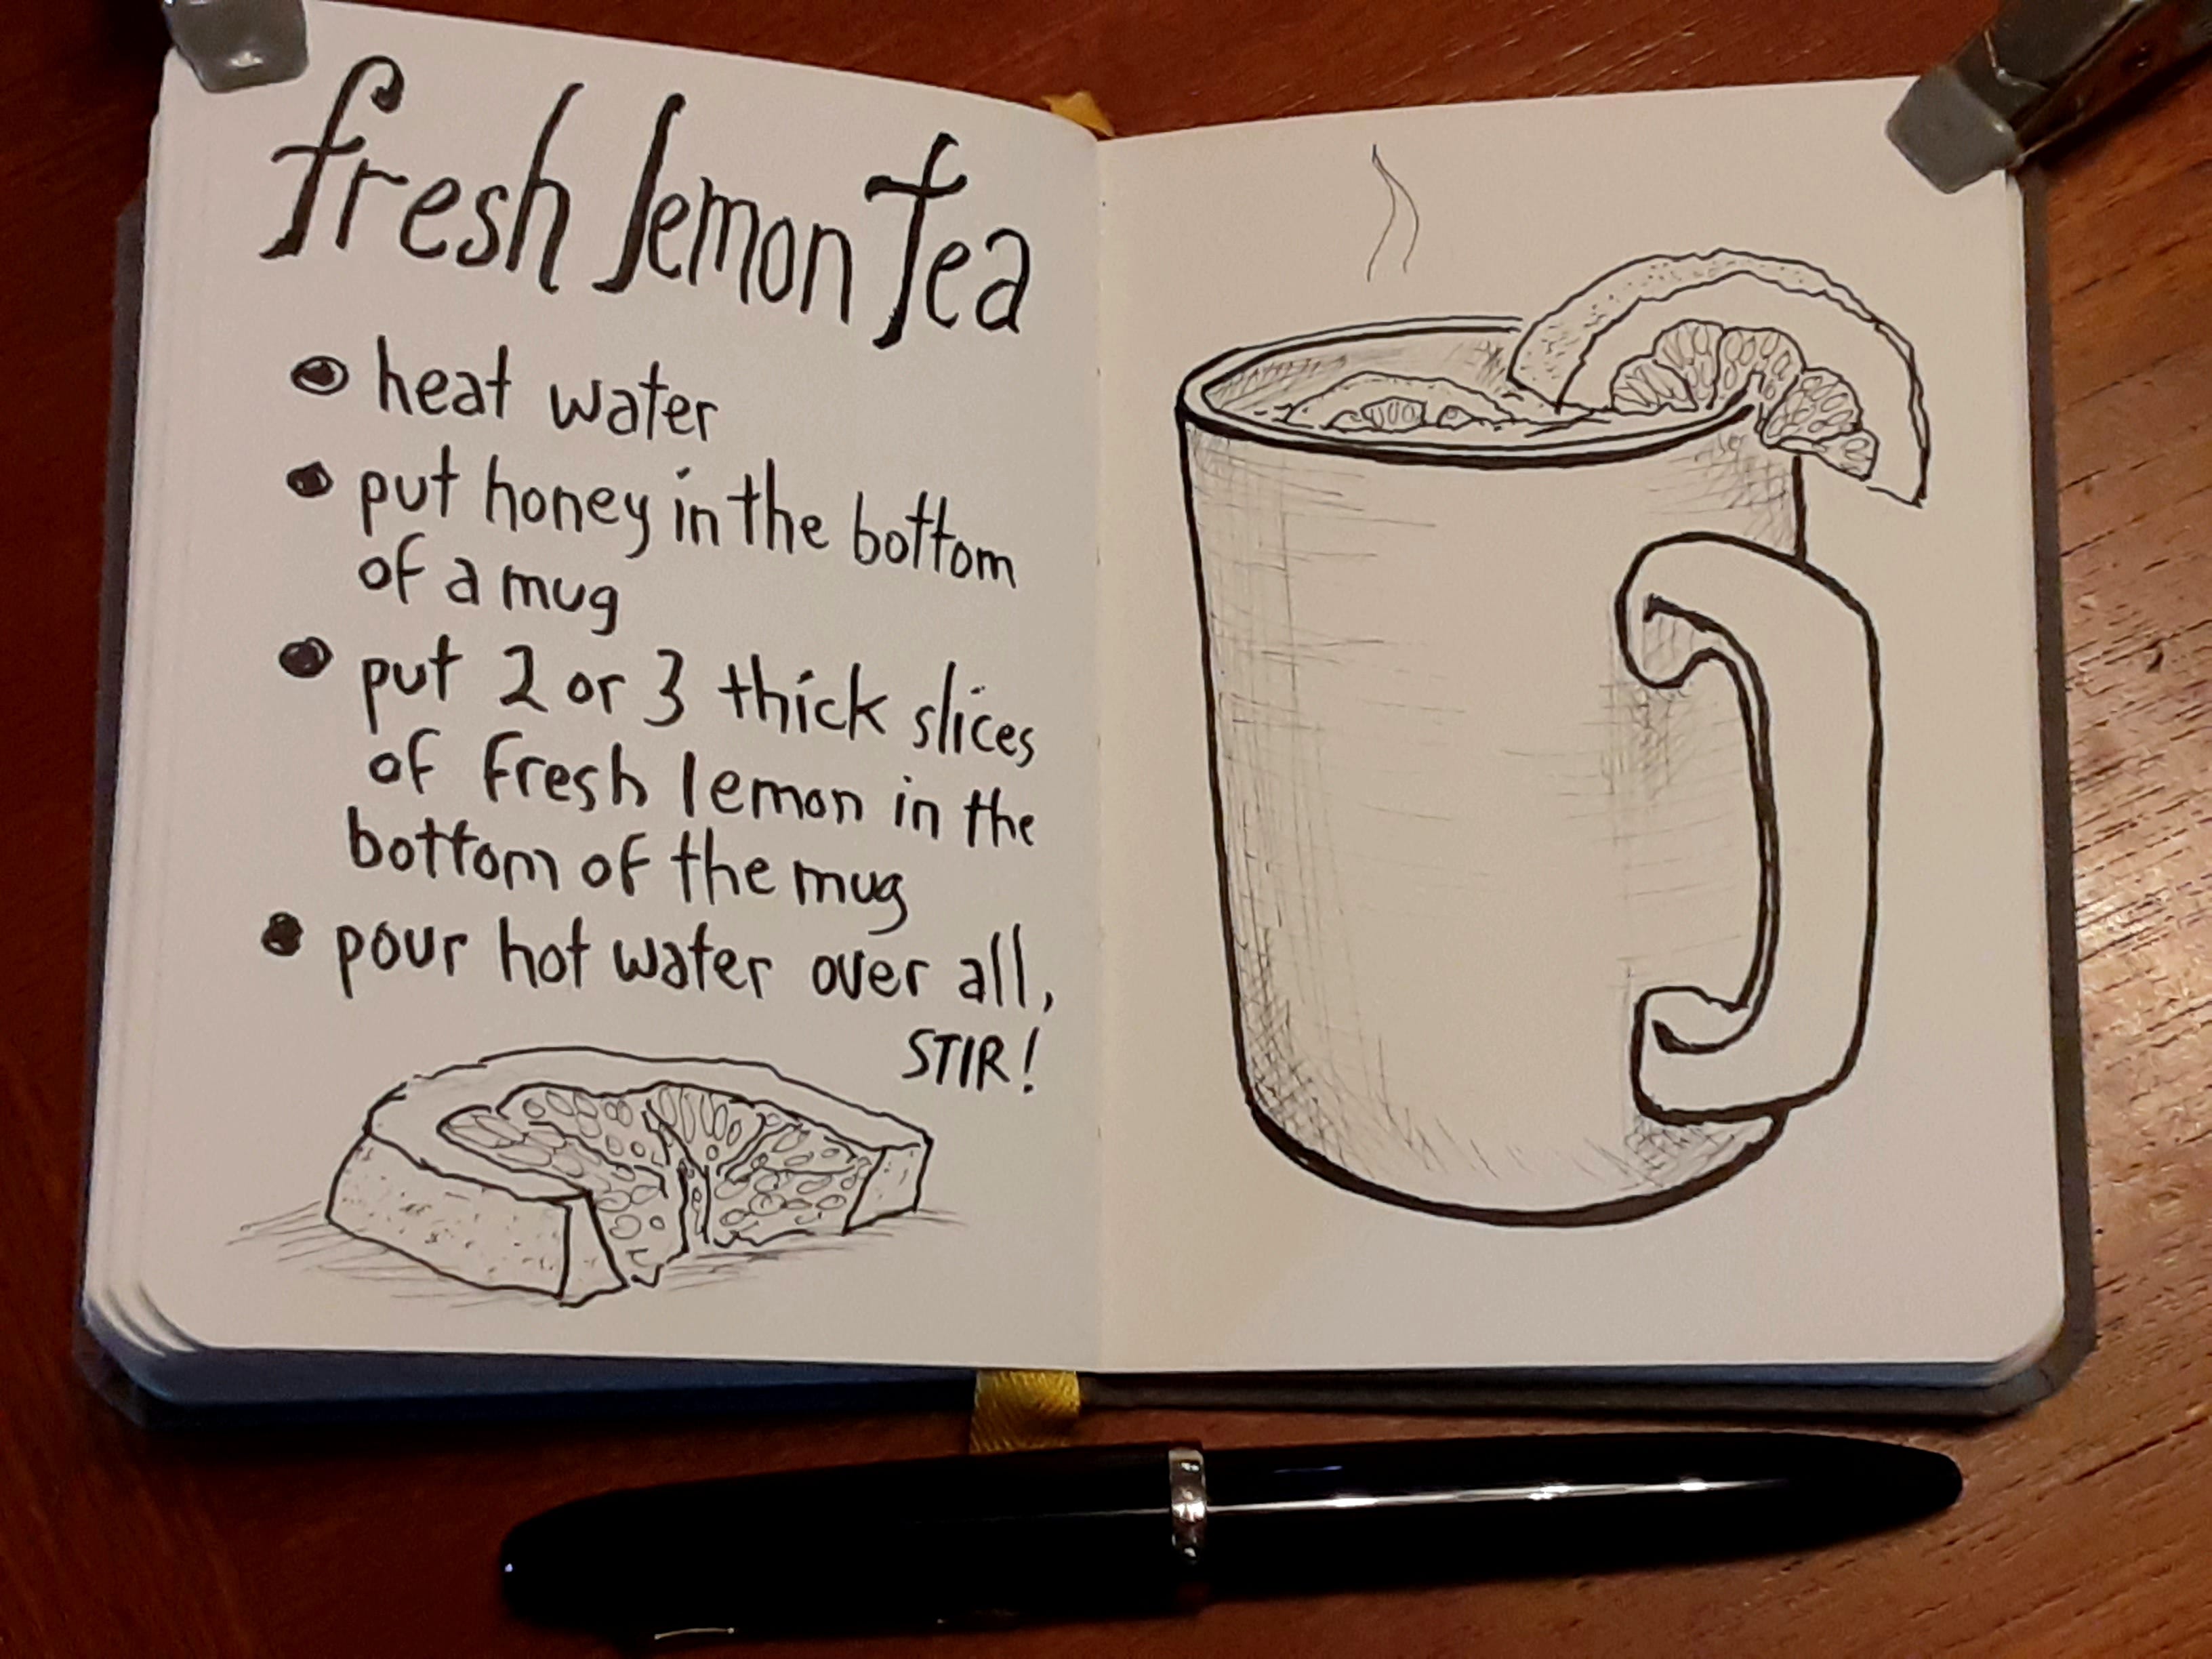 fresh lemon Tea
heat water
put honey in the bottom
of a mug
put 2 or 3 thick slices
of fresh lemon in the
bottom of the mug
pour hot water over all,
STIR!